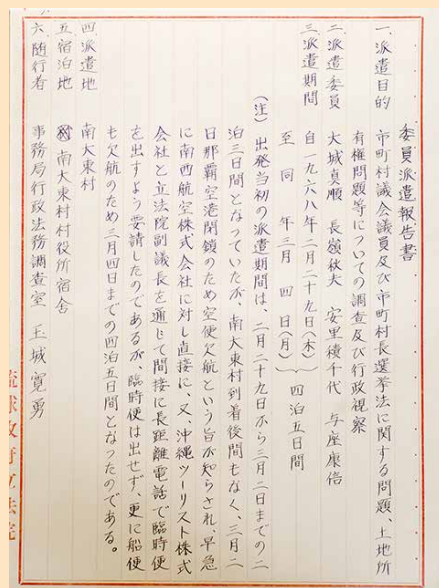 委員派遣報告書
一 派遣目的 市町村議会議員及び市町村長選挙法に関する問題、土地所
有権問題等についての調査及び行政視察
二 派遣委員 大城真順 長嶺秋夫 安里積千代 与座康信
三 派遣期間 自一九六八年二月二十九日(木)
至 同 年三月 四 日(月)
四泊五日間
(注) 出発当初の派遣期間は、二月二十九日から三月二日までの二
泊三日間となっていたが、南大東村到着後間もなく、三月二
日那覇空港閉鎖のため空便欠航という旨が知らされ、早急
に南西航空株式会社に対し直接に、又、沖縄ツーリスト株式
会社と立法院副議長を通じて間接に長距離電話で臨時便
を出すよう要請したのであるが、臨時便は出せず、更に船便
も欠航のため三月四日までの四泊五日間となったのである。
四 派遣地 南大東村
五 宿泊地 南大東村村役所宿舎
六 随行者 事務局行政法務調査室 玉城寛勇
琉球政府立法院